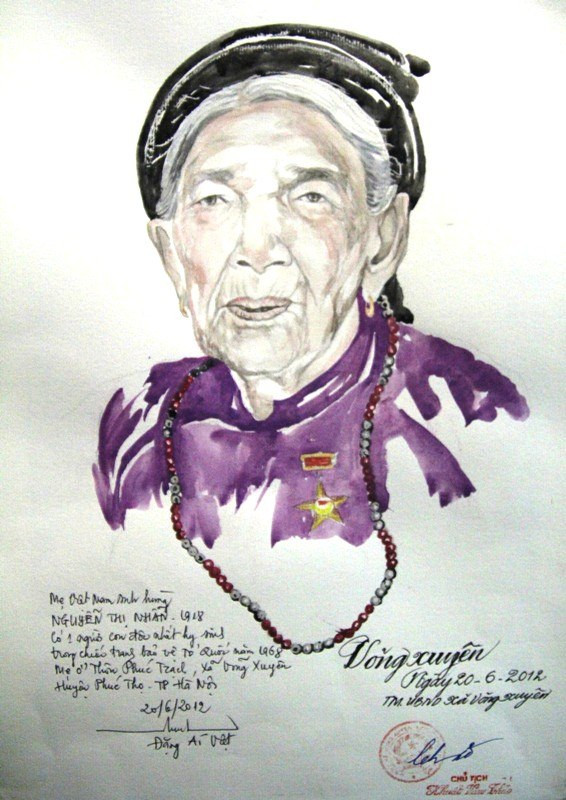 Mẹ Việt Nam anh hùng
NGUYỄN THỊ NHẪN - 1918
Có 1 người con độc nhất hy sinh
trong chiến tranh bảo vệ Tổ Quốc năm 1968
Mẹ ở Thôn Phúc Trạch, xã Võng Xuyên
Huyện Phúc Thọ - TP Hà Nội
20/6/2012
Đặng Ái Việt
Võng Xuyên
Ngày 20-6-2012
TM. UBND xã Võng Xuyên
CHỦ TỊCH